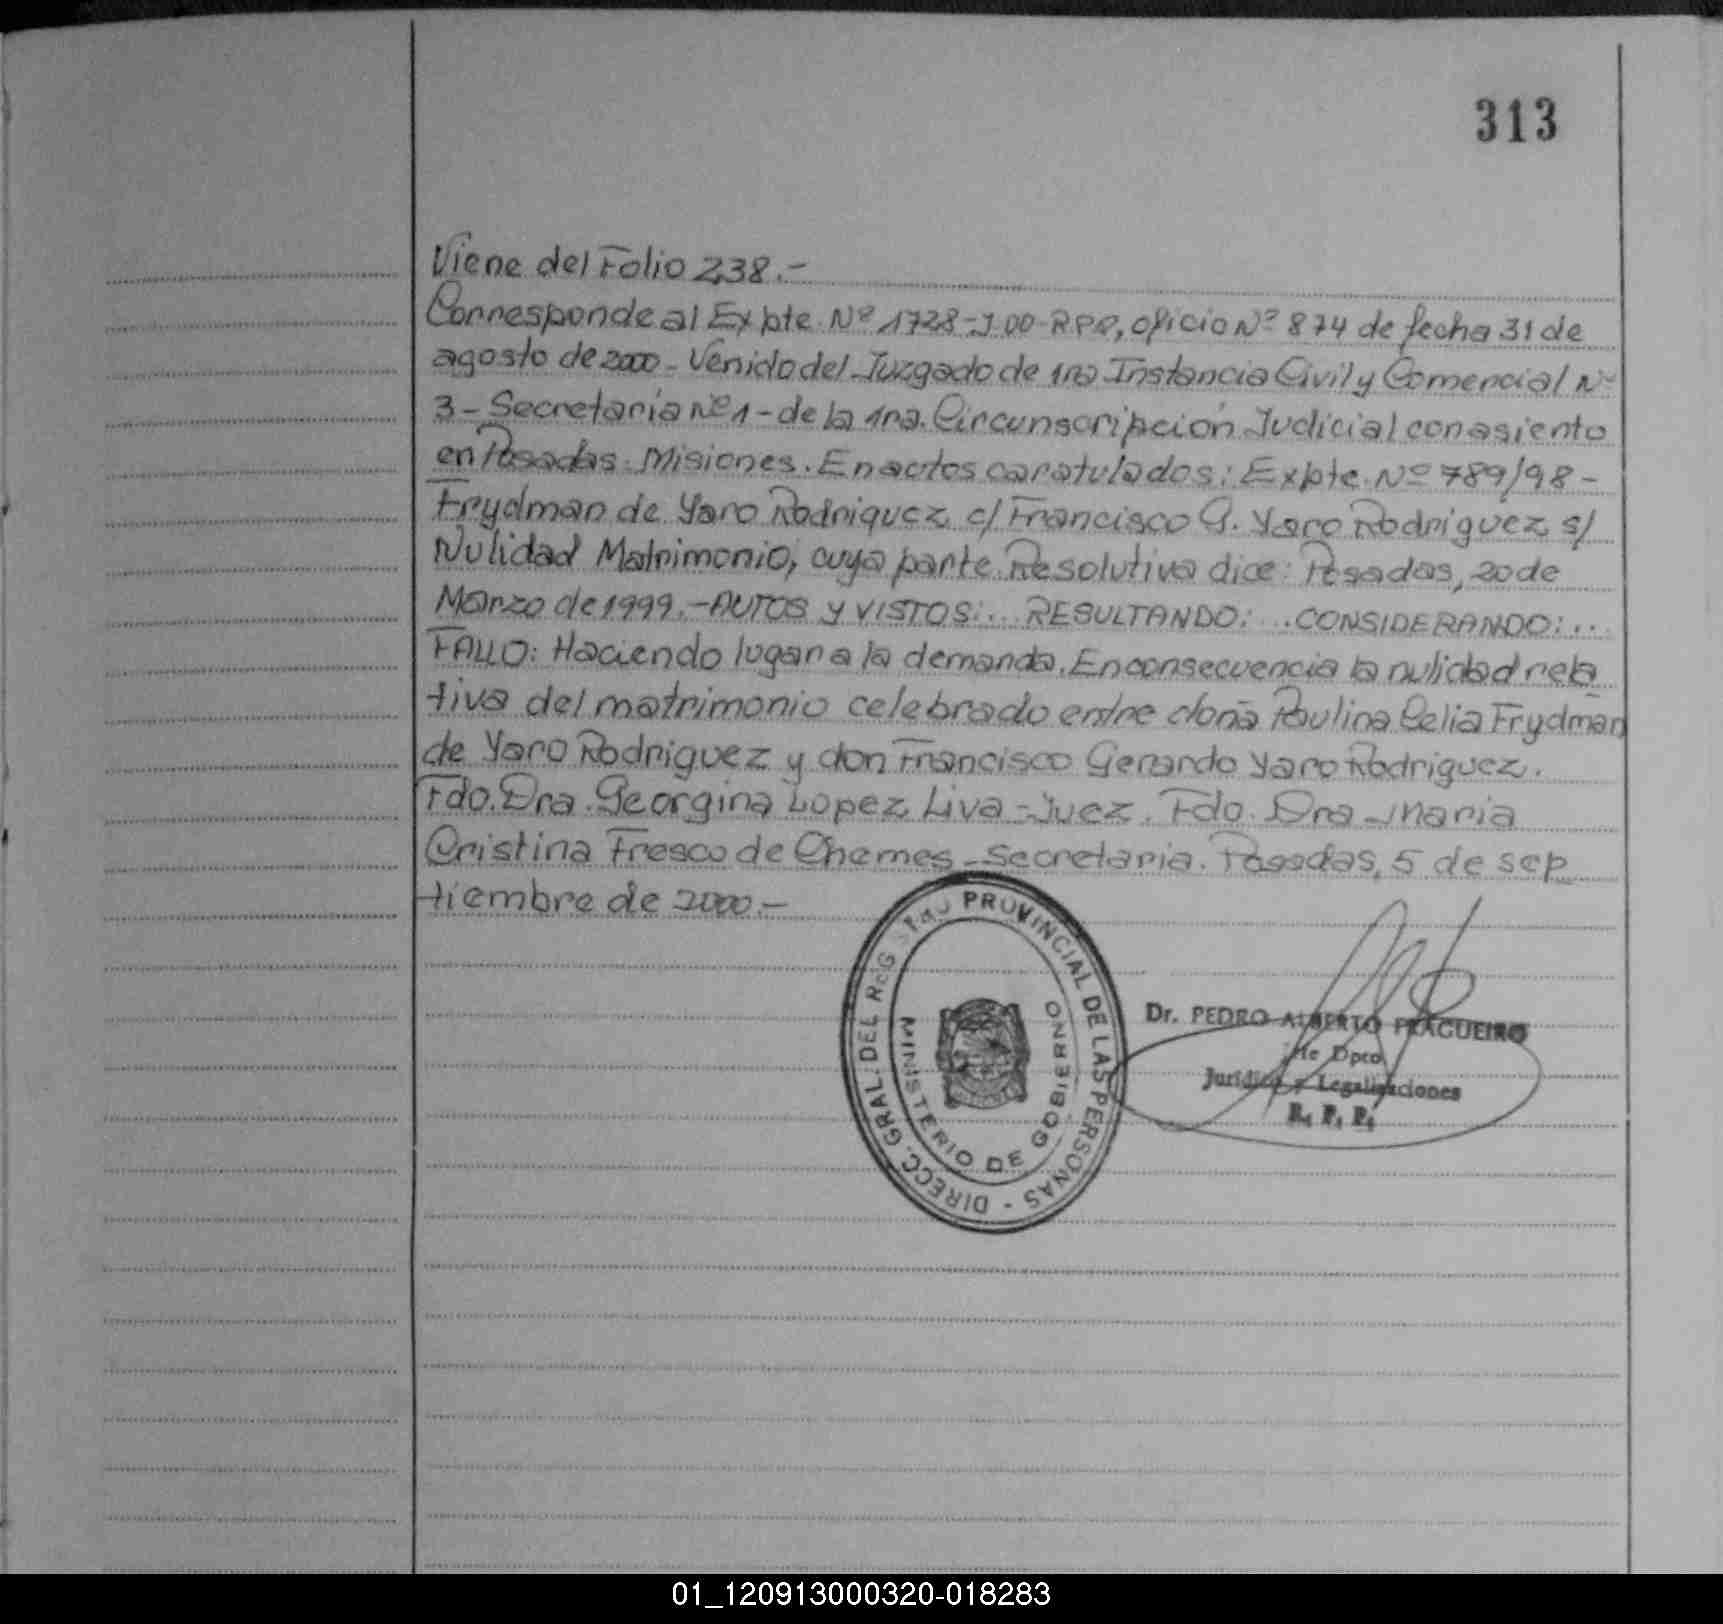 313
Viene del Folio 238.-
Corresponde al Expte. Nº 1728-J-00-RPP, oficio Nº 874 de fecha 31 de
agosto de 2000 - Venido del Juzgado de 1ra Instancia Civil y Comercial Nº
3 - Secretaría Nº 1 - de la 1ra. Circunscripción Judicial con asiento
en Posadas. Misiones. En autos caratulados: Expte. Nº 789/98 -
Frydman de Yaro Rodriguez c/ Francisco G. Yaro Rodriguez s/
Nulidad Matrimonio, cuya parte Resolutiva dice: Posadas, 20 de
Marzo de 1999.- AUTOS y VISTOS:... RESULTANDO: ...CONSIDERANDO:...
FALLO: Haciendo lugar a la demanda. En consecuencia la nulidad rela
tiva del matrimonio celebrado entre doña Paulina Celia Frydman
de Yaro Rodriguez y don Francisco Gerardo Yaro Rodriguez.
Fdo. Dra. Georgina Lopez Liva - Juez. Fdo. Dra Maria
Cristina Fresco de Chemes - Secretaria. Posadas, 5 de sep
tiembre de 2000.-
DIRECC. GRAL. DEL REGISTRO PROVINCIAL DE LAS PERSONAS -
MINISTERIO DE GOBIERNO
Dr. PEDRO ALBERTO FRAGUEIRO
Jfe Dpto
Jurídico y Legalizaciones
R. P. P.
01_120913000320-018283